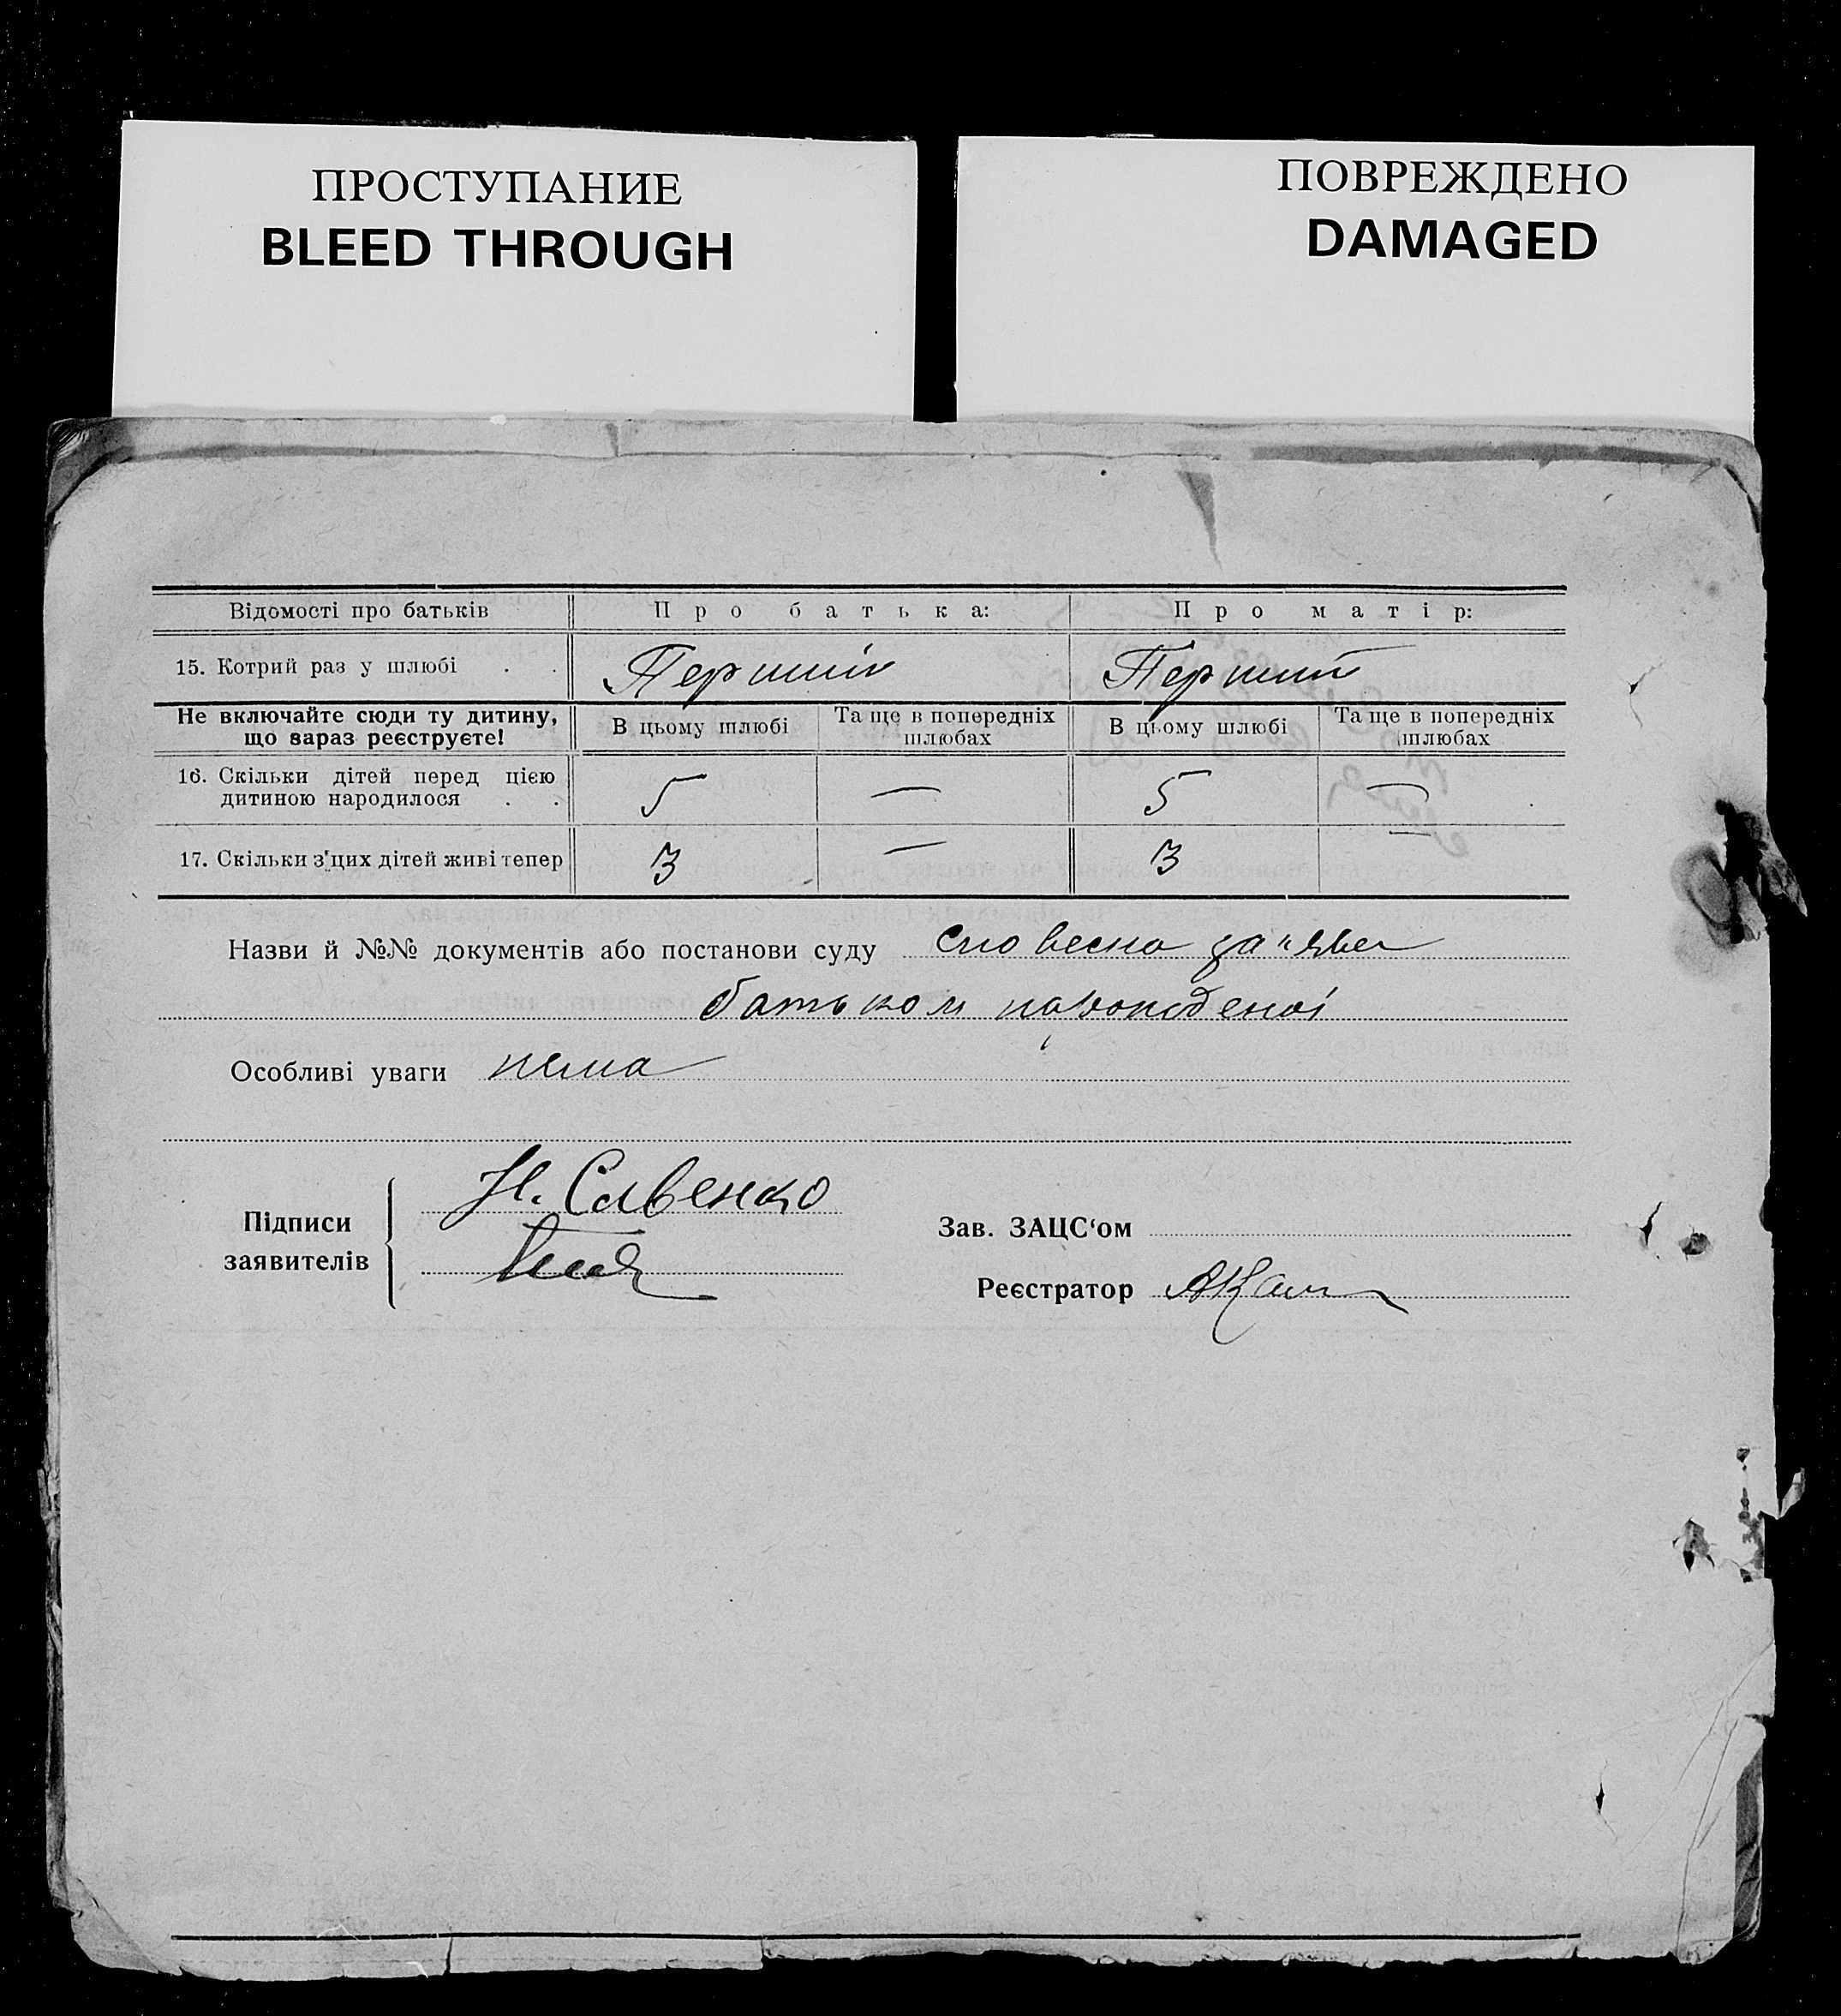 ПРОСТУПАНИЕ
BLEED THROUGH
ПОВРЕЖДЕНО
DAMAGED
Відомості про батьків Про батька: Про матір:
15. Котрий раз у шлюбі . . Перший Перший
Не включайте сюди ту дитину, що зараз реєструєте! В цьому шлюбі Та ще в попередніх шлюбах В цьому шлюбі Та ще в попередніх шлюбах
16. Скільки дітей перед цією дитиною народилося . . 5 — 5 —
17. Скільки з'цих дітей живі тепер 3 — 3 —
Назви й №№ документів або постанови суду словесна за"ява
батьком народженої
Особливі уваги нема
Підписи заявителів Н. Савенко
Зав. ЗАЦС‘ом
Реєстратор